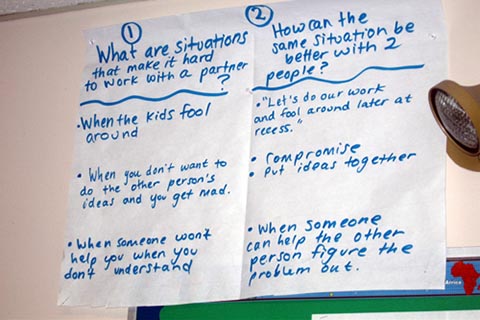 1
What are situations
that make it hard
to work with a partner
?
• When the kids fool
around
• When you don't want to
do the other person's
ideas and you get mad.
• When someone won't
help you when you
don't understand
2
How can the
same situation be
better with 2
people?
• "Let's do our work
and fool around later at
recess."
• compromise
• Put ideas together
• When someone
can help the other
person figure the
problem out.
Africa